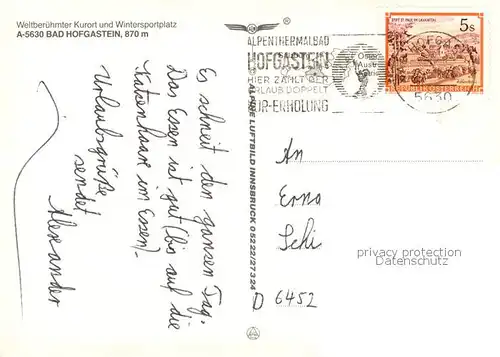 Weltberühmter Kurort und Wintersportplatz
A-5630 BAD HOFGASTEIN, 870 m
Es schneit den ganzen Tag.
Das Essen ist gut (bis auf die
Katzenhaare im Essen).
Urlaubsgrüße
sendet
Alexander
ALPINE LUFTBILD INNSBRUCK 05222/27324
ALPENTHERMALBAD
HOFGASTEIN
HIER ZÄHLT DER
URLAUB DOPPELT
KUR-ERHOLUNG
STIFT ST. PAUL IM LAVANTTAL
5s
REPUBLIK ÖSTERREICH
5630
An
Erna
Schi
privacy protection
Datenschutz
D 6452